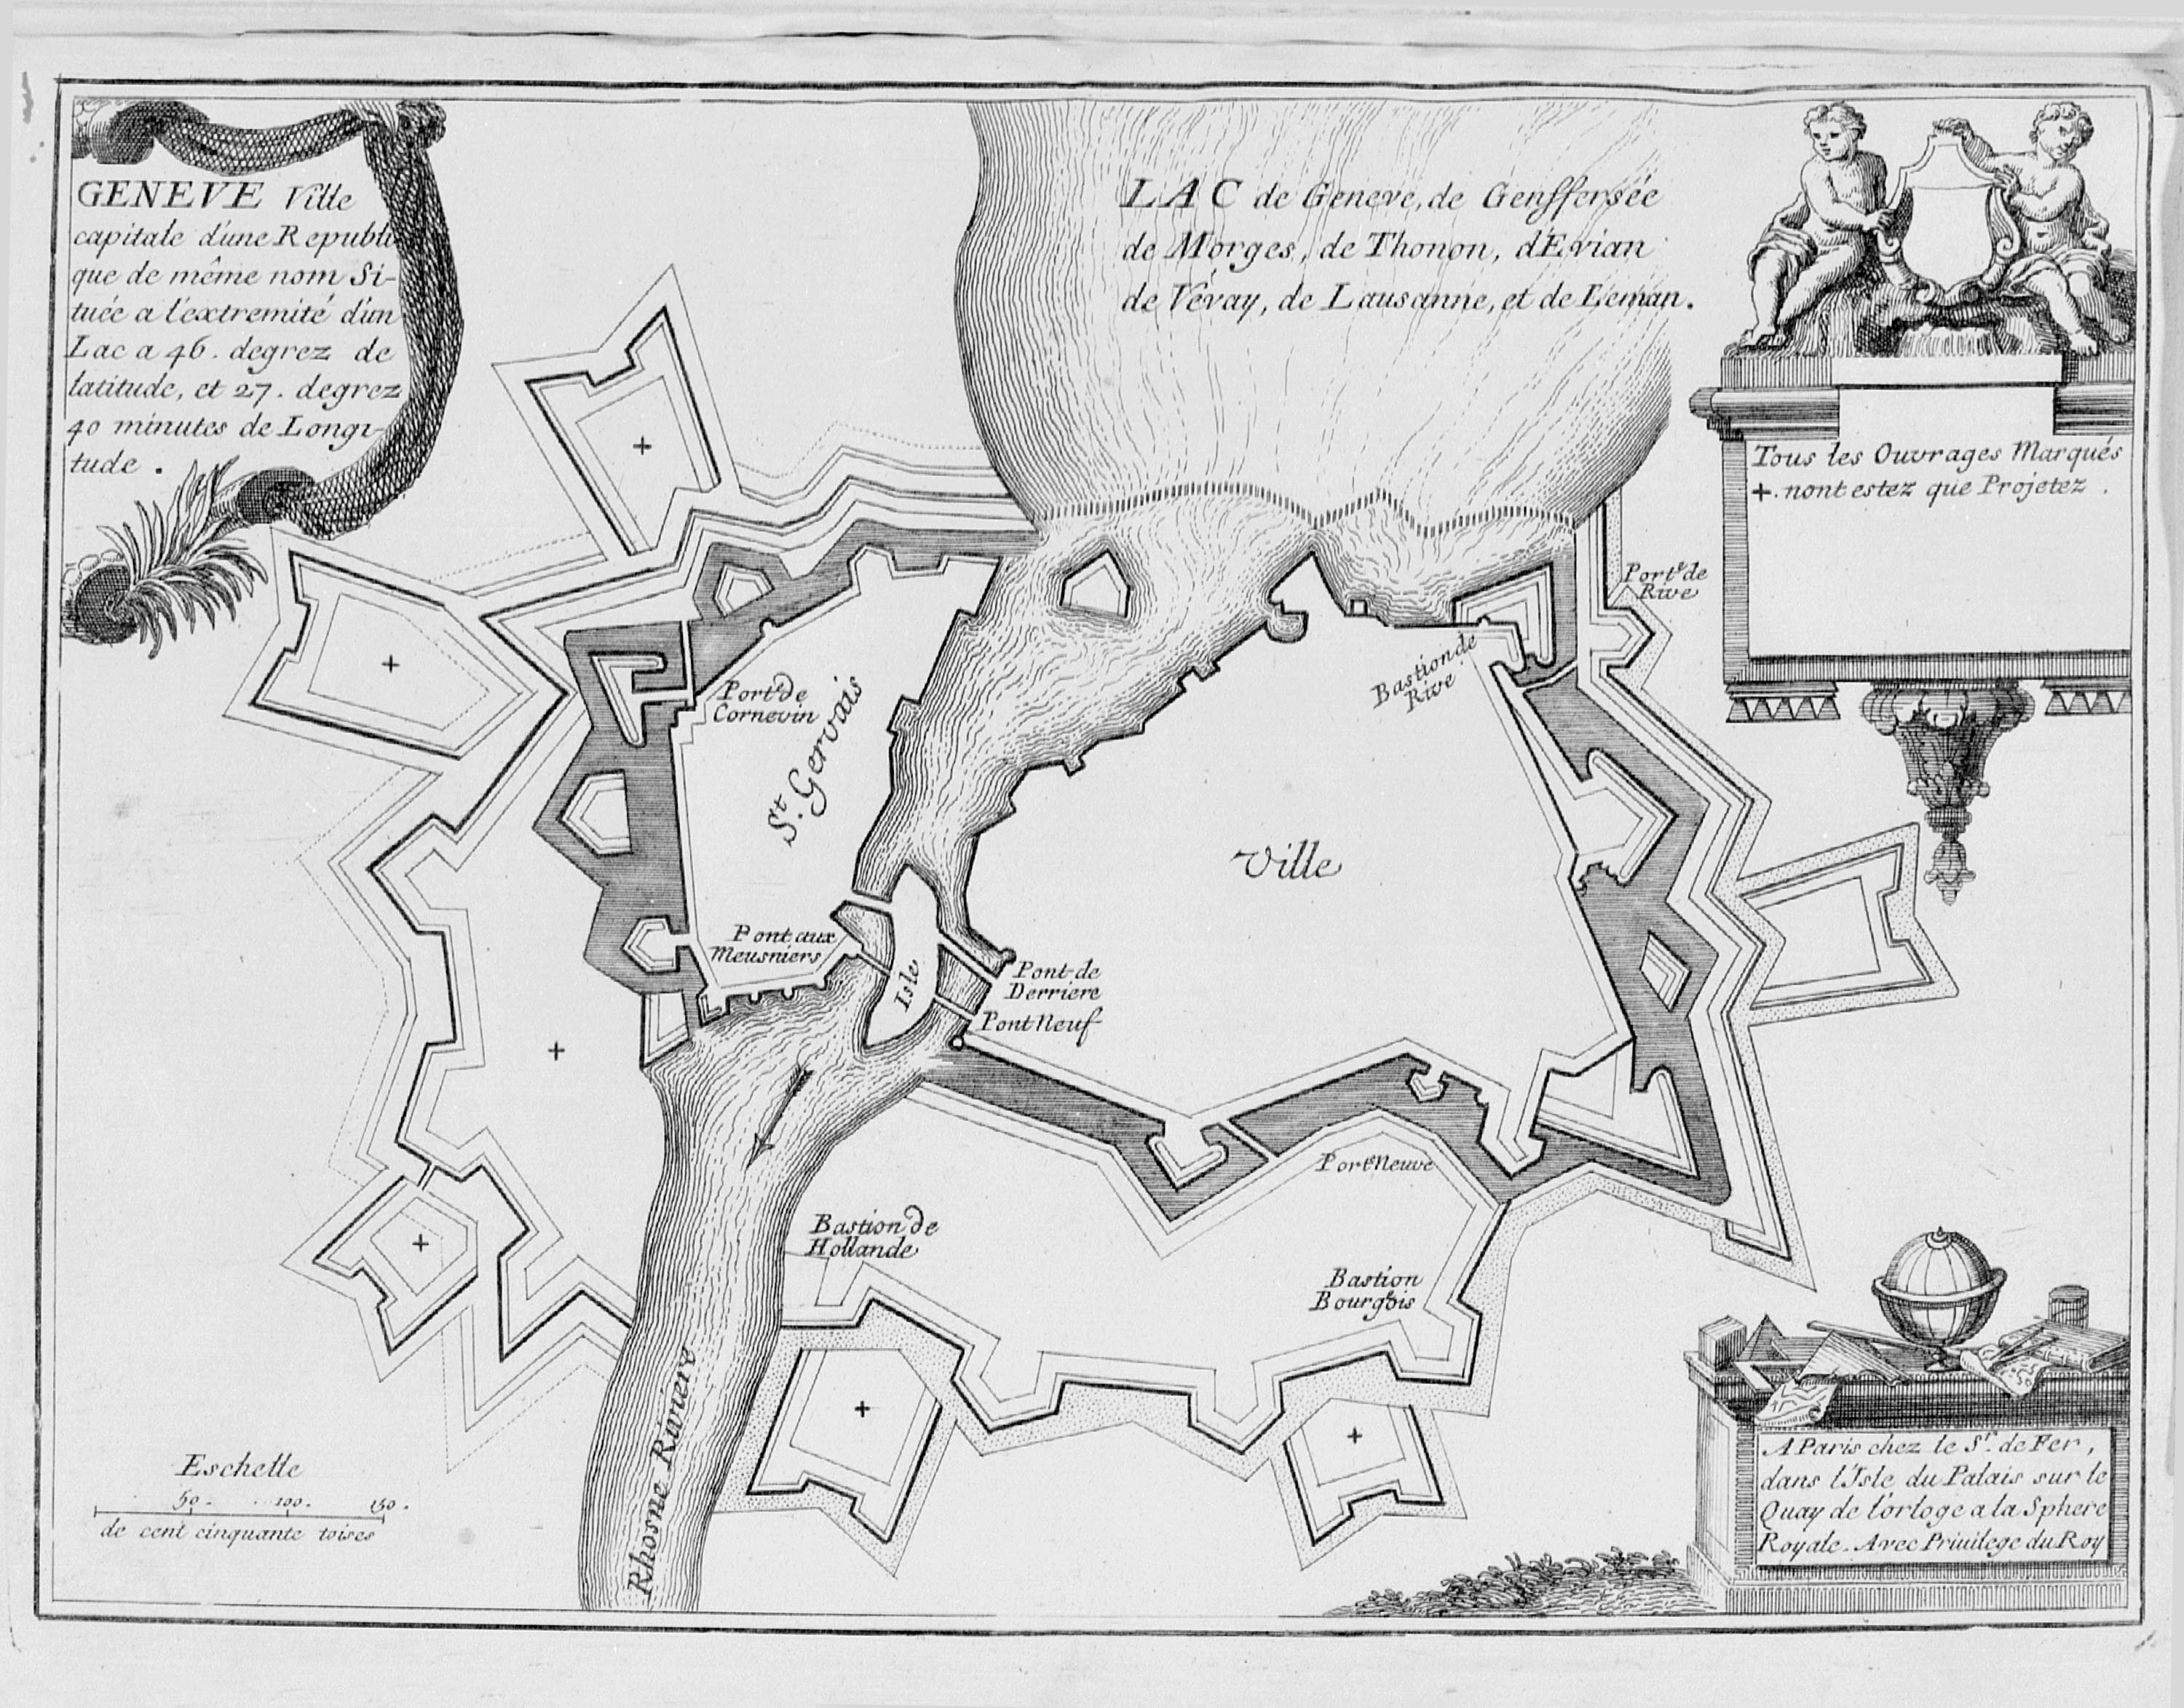 GENEVE Ville
capitale d'une Republi
que de même nom Si-
tuée a l'extremité d'un
Lac a 46. degrez de
latitude, et 27. degrez
40 minutes de Longi-
tude.
LAC de Geneve, de Genffersée
de Morges, de Thonon, d'Evian
de Vévay, de Lausanne, et de Leman.
Tous les Ouvrages Marqués
+. nont estez que Projetez.
Porte de
Rive
Bastion de
Rive
Porte de
Cornevin
St. Gervais
Ville
Pont aux
Meusniers
Isle
Pont de
Derriere
Pont Neuf
Porte Neuve
Bastion de
Hollande
Bastion
Bourgois
Rhosne Riviere
Eschelle
50. 100. 150.
de cent cinquante toises
A Paris chez le Sr. de Fer,
dans l'Isle du Palais sur le
Quay de l'orloge a la Sphere
Royale. Avec Priuilege du Roy